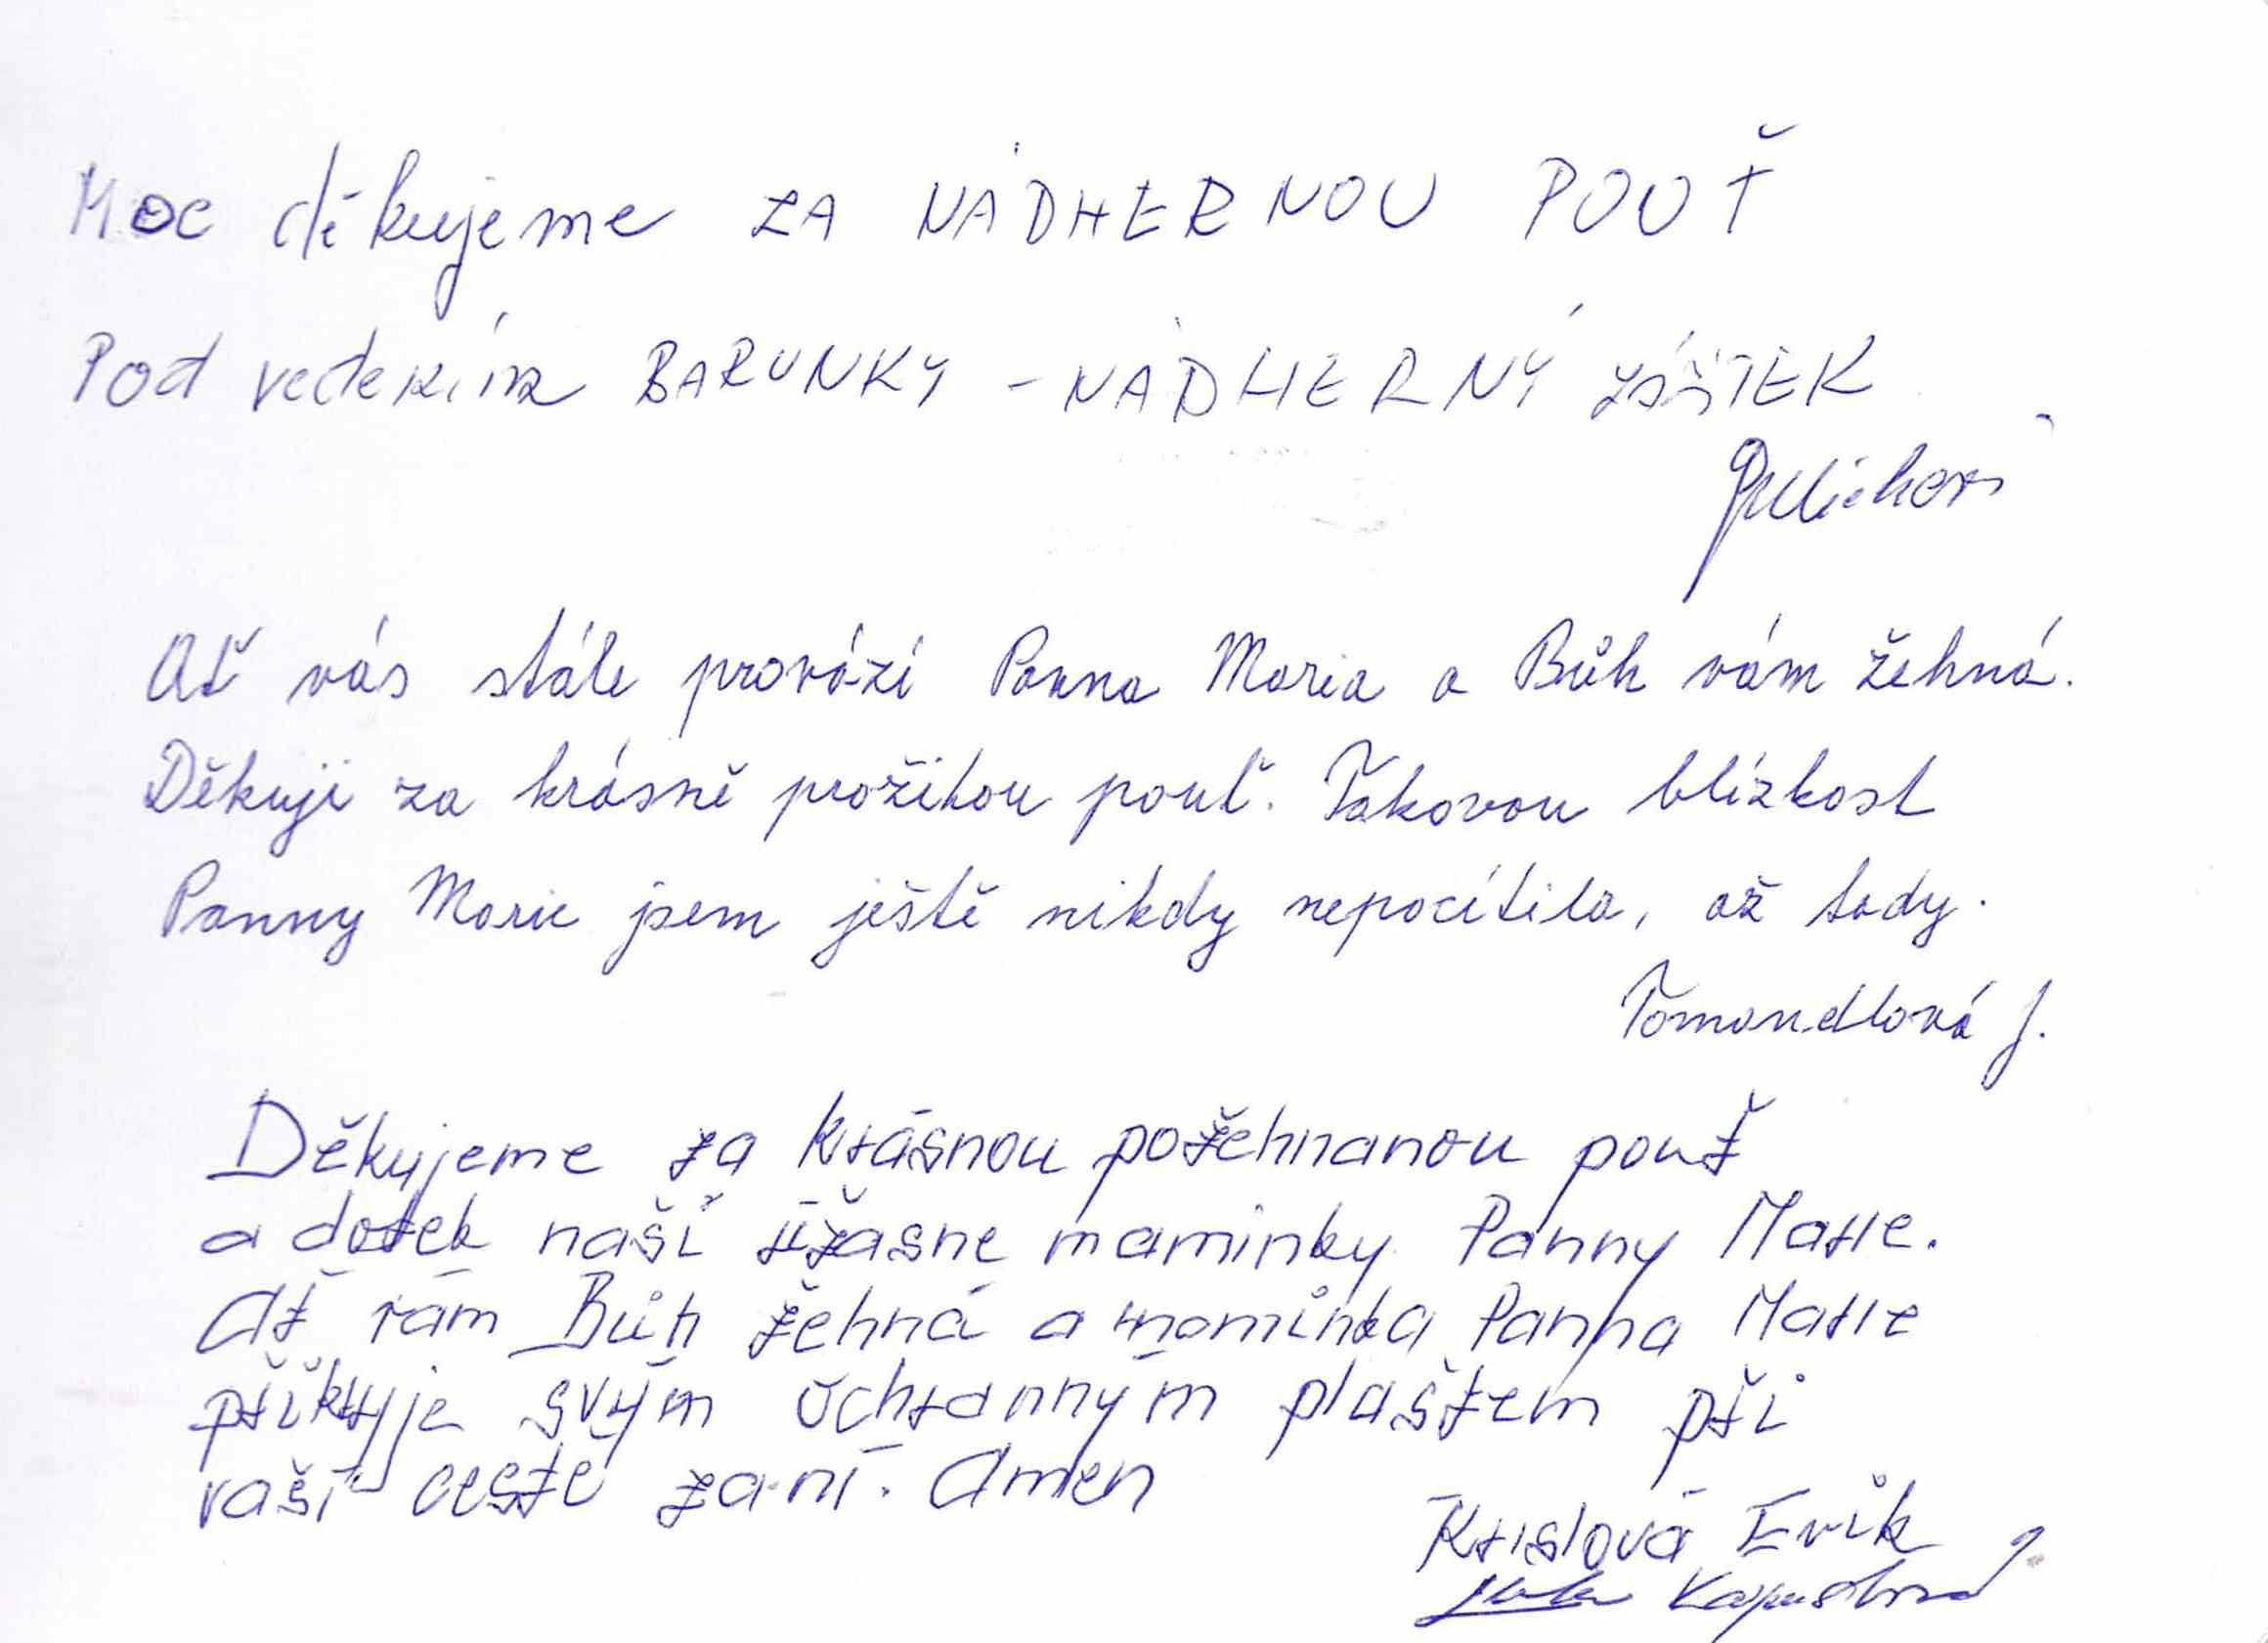 Moc děkujeme ZA NÁDHERNOU POUŤ
Pod vedením BARUNKY - NÁDHERNÝ ZÁŽITEK
Ať vás stále provází Panna Maria a Bůh vám žehná.
Děkuji za krásně prožitou pouť. Takovou blízkost
Panny Marie jsem ještě nikdy nepocítila, až tady.
Tomandlová J.
Děkujeme za krásnou požehnanou pouť
a dotek naší úžasne maminky Panny Marie.
Ať vám Bůh žehná a maminka Panna Marie
přikryje svým ochranným plaštěm při
vaší cestě za ní. Amen
Krislová Evik
Kapustová